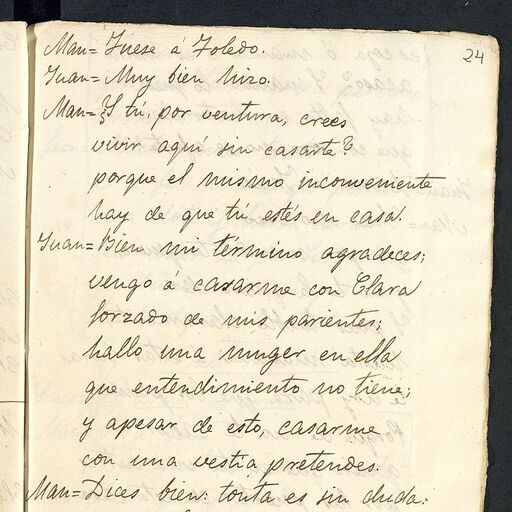 24
Man= Fuese á Toledo.
Juan= Muy bien hizo.
Man= ¿Y tú, por ventura, crees
vivir aquí sin casarte?
porque el mismo inconveniente
hay de que tú estés en casa.
Juan= Bien mi término agradeces;
vengo á casarme con Clara
forzado de mis parientes;
hallo una muger en ella
que entendimiento no tiene;
y apesar de esto, casarme
con una vestia pretendes.
Man= Dices bien: tonta es sin duda: